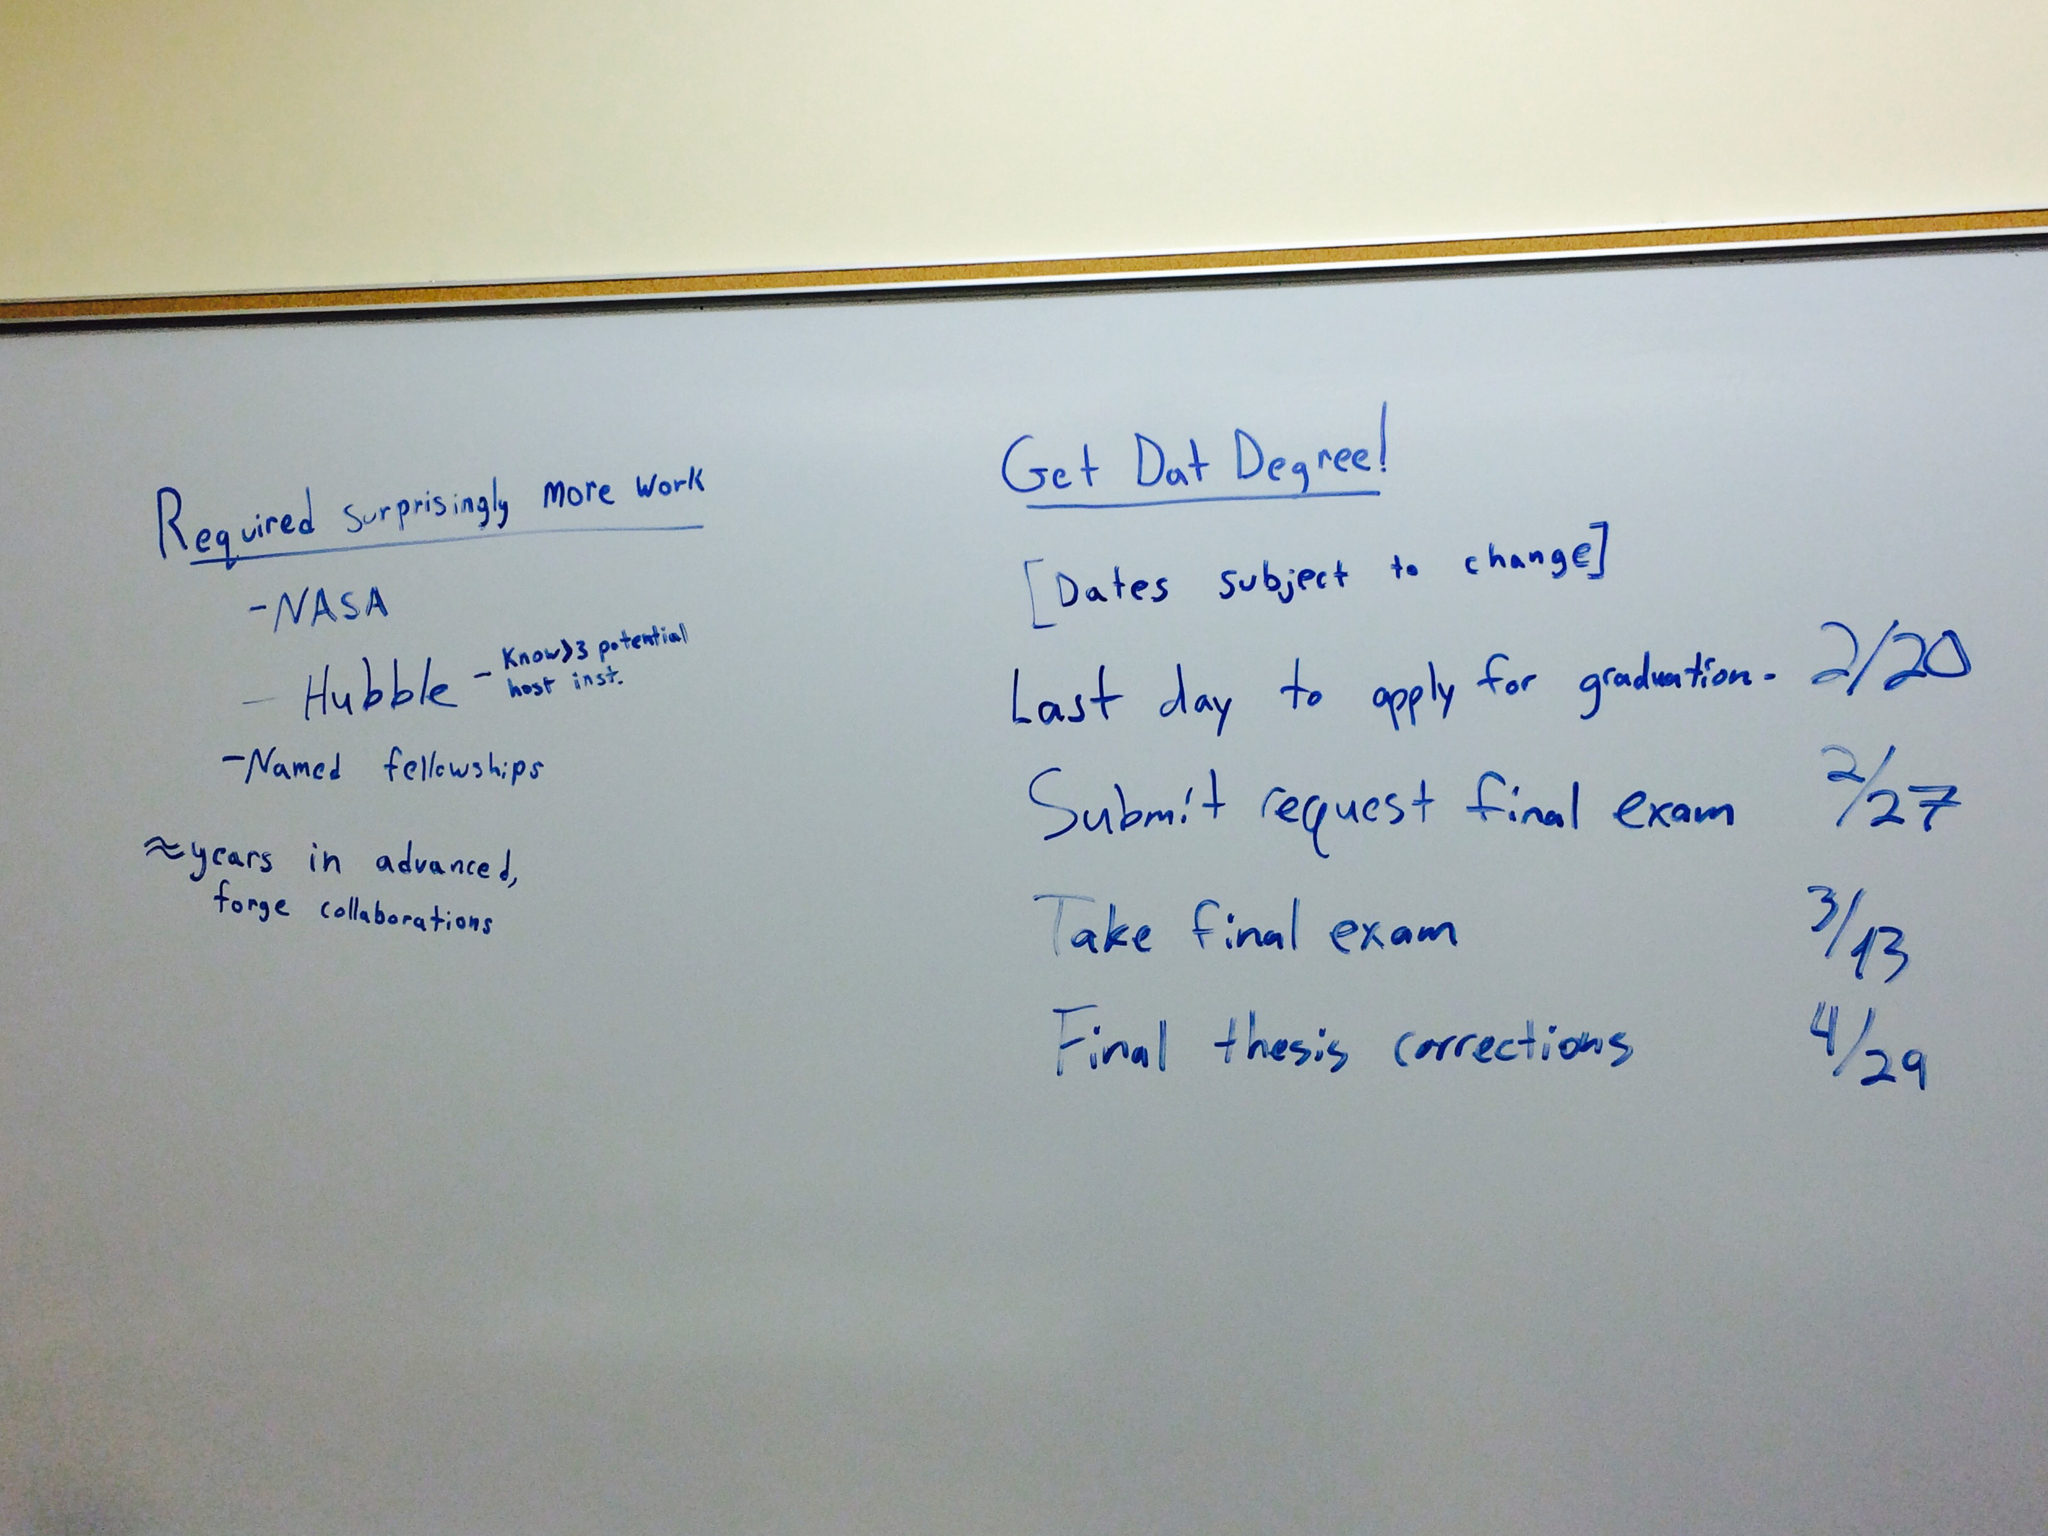 Required surprisingly more work
- NASA
- Hubble - Know>3 potential
host inst.
- Named fellowships
≈years in advanced,
forge collaborations
Get Dat Degree!
[Dates subject to change]
Last day to apply for graduation - 2/20
Submit request final exam 2/27
Take final exam 3/13
Final thesis corrections 4/29